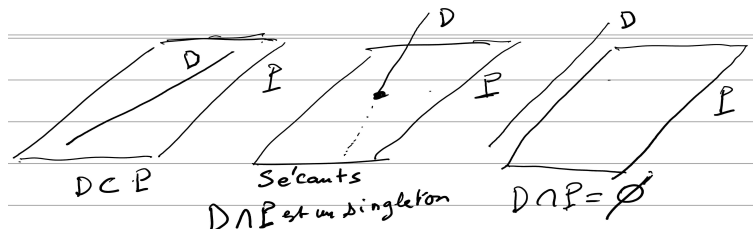 D
P
D ⊂ P
D
P
Sécants
D ∩ P est un singleton
D
P
D ∩ P = ∅